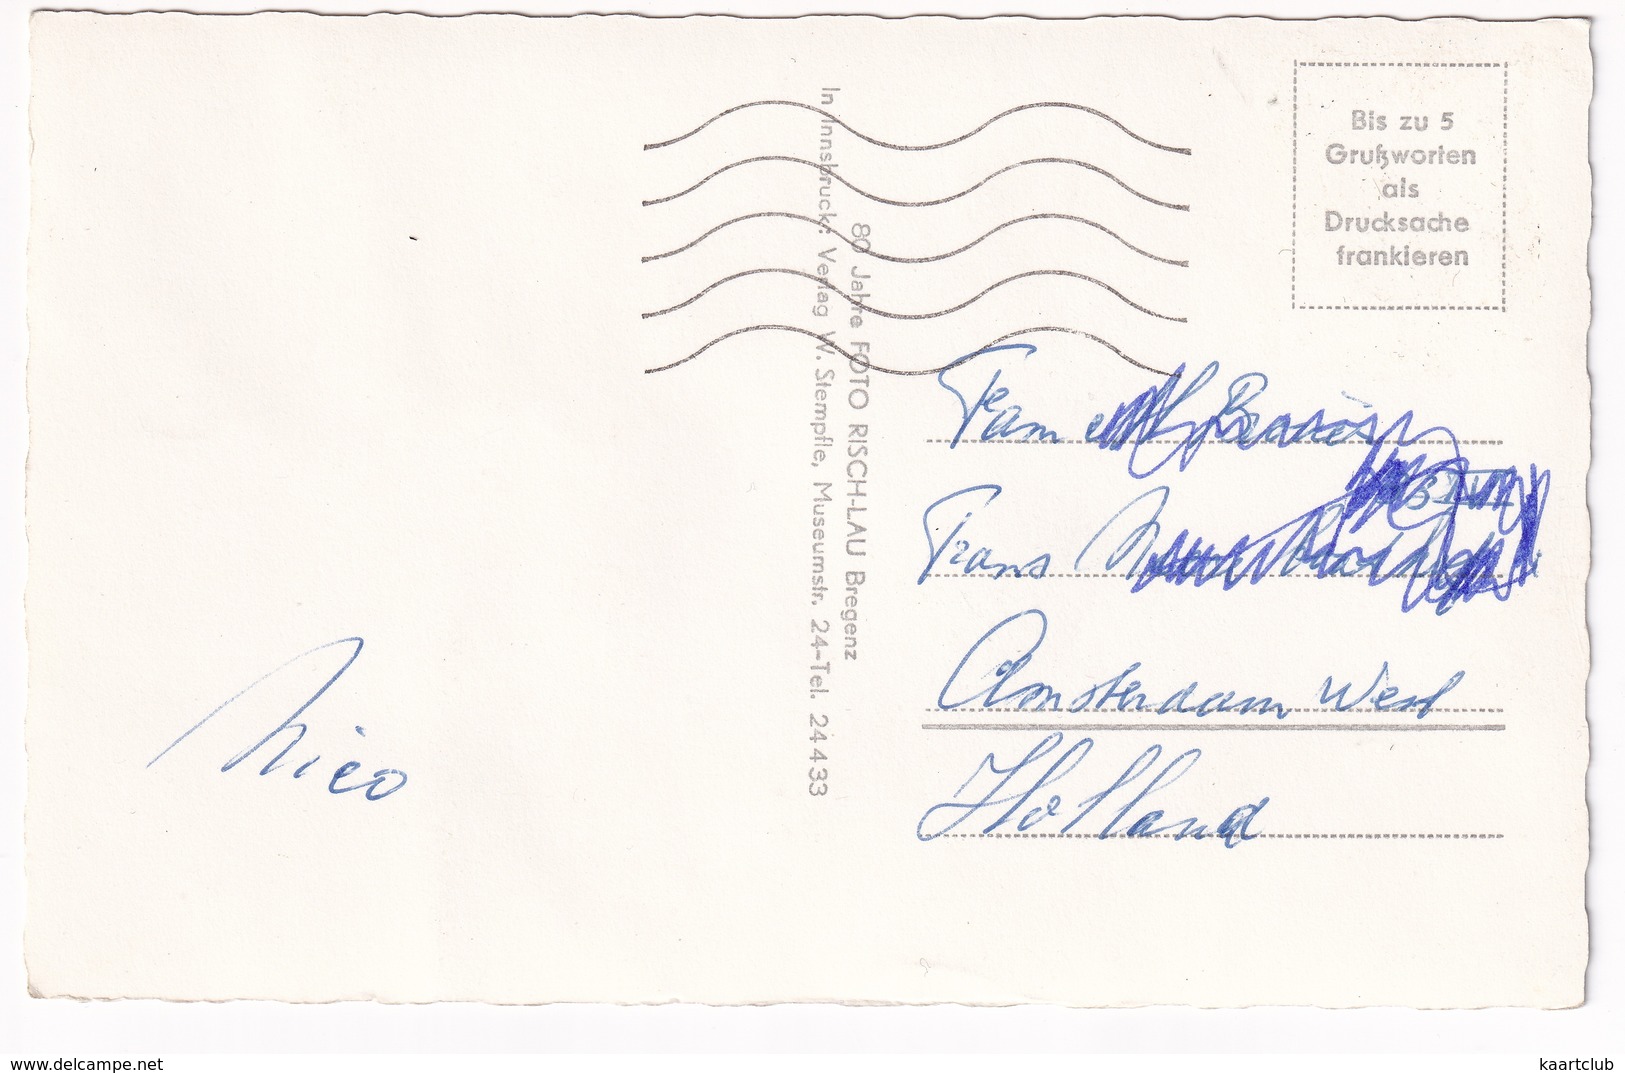 Bis zu 5
Grußworten
als
Drucksache
frankieren
80 Jahre FOTO RISCH-LAU Bregenz
In Innsbruck: Verlag W. Stempfle, Museumstr. 24-Tel. 24433
Fam
Frans
Amsterdam West
Holland
Nico
www.delcampe.net
kaartclub